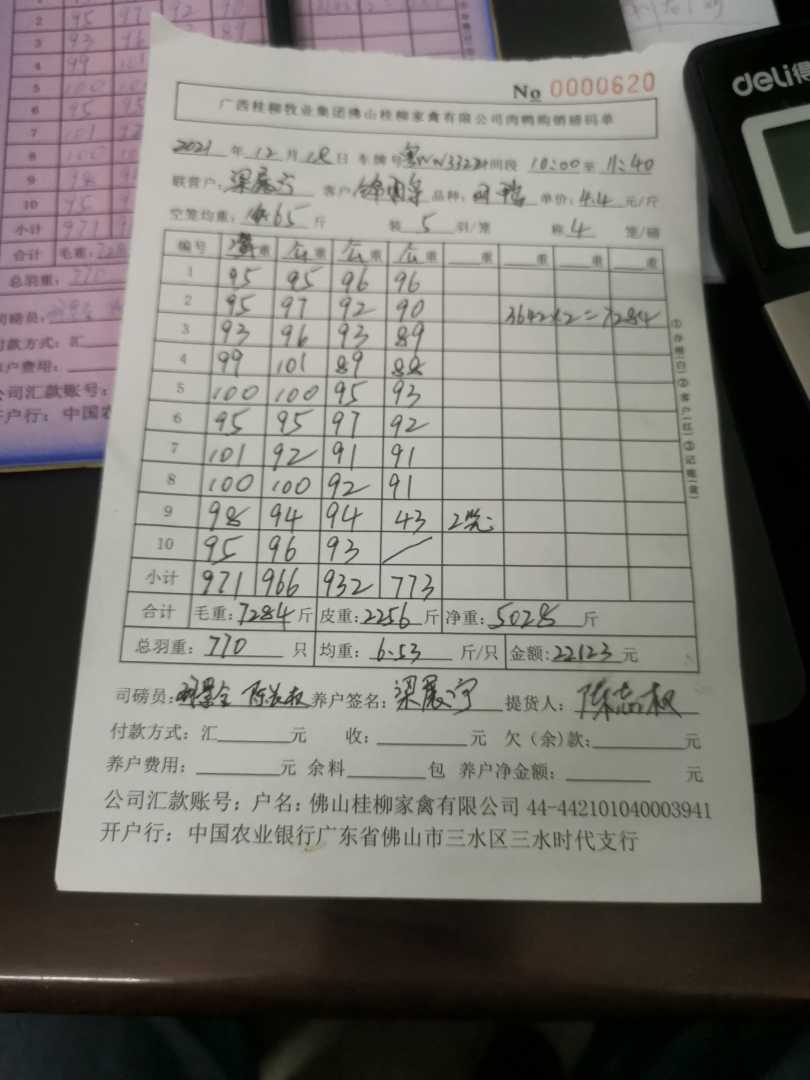 No 0000620
广西桂柳牧业集团佛山桂柳家禽有限公司肉鸭购销磅码单
2021 年 12 月 18 日 车牌号 时间段 10:00 至 11:40
联营户: 梁展宁 客户 品种: 单价: 4.4 元/斤
空笼均重: 65 斤 装 5 羽/笼 称 4 笼/磅
编号 重 重 重 重 重 重 重 重
1 95 95 96 96
2 95 97 92 90 3642×2=7284
3 93 96 93 89
4 99 101 89 88
5 100 100 95 93
6 95 95 97 92
7 101 92 91 91
8 100 100 92 91
9 98 94 94 43 2笼
10 95 96 93
小计 971 966 932 773
合计 毛重: 7284 斤 皮重: 2256 斤 净重: 5028 斤
总羽重: 770 只 均重: 6.53 斤/只 金额: 22123 元
司磅员: 养户签名: 梁展宁 提货人: 陈志权
付款方式: 汇 元 收: 元 欠(余)款: 元
养户费用: 元 余料 包 养户净金额: 元
公司汇款账号: 户名: 佛山桂柳家禽有限公司 44-442101040003941
开户行: 中国农业银行广东省佛山市三水区三水时代支行
①存根(白)②客户(红)③记账(黄)
deli得